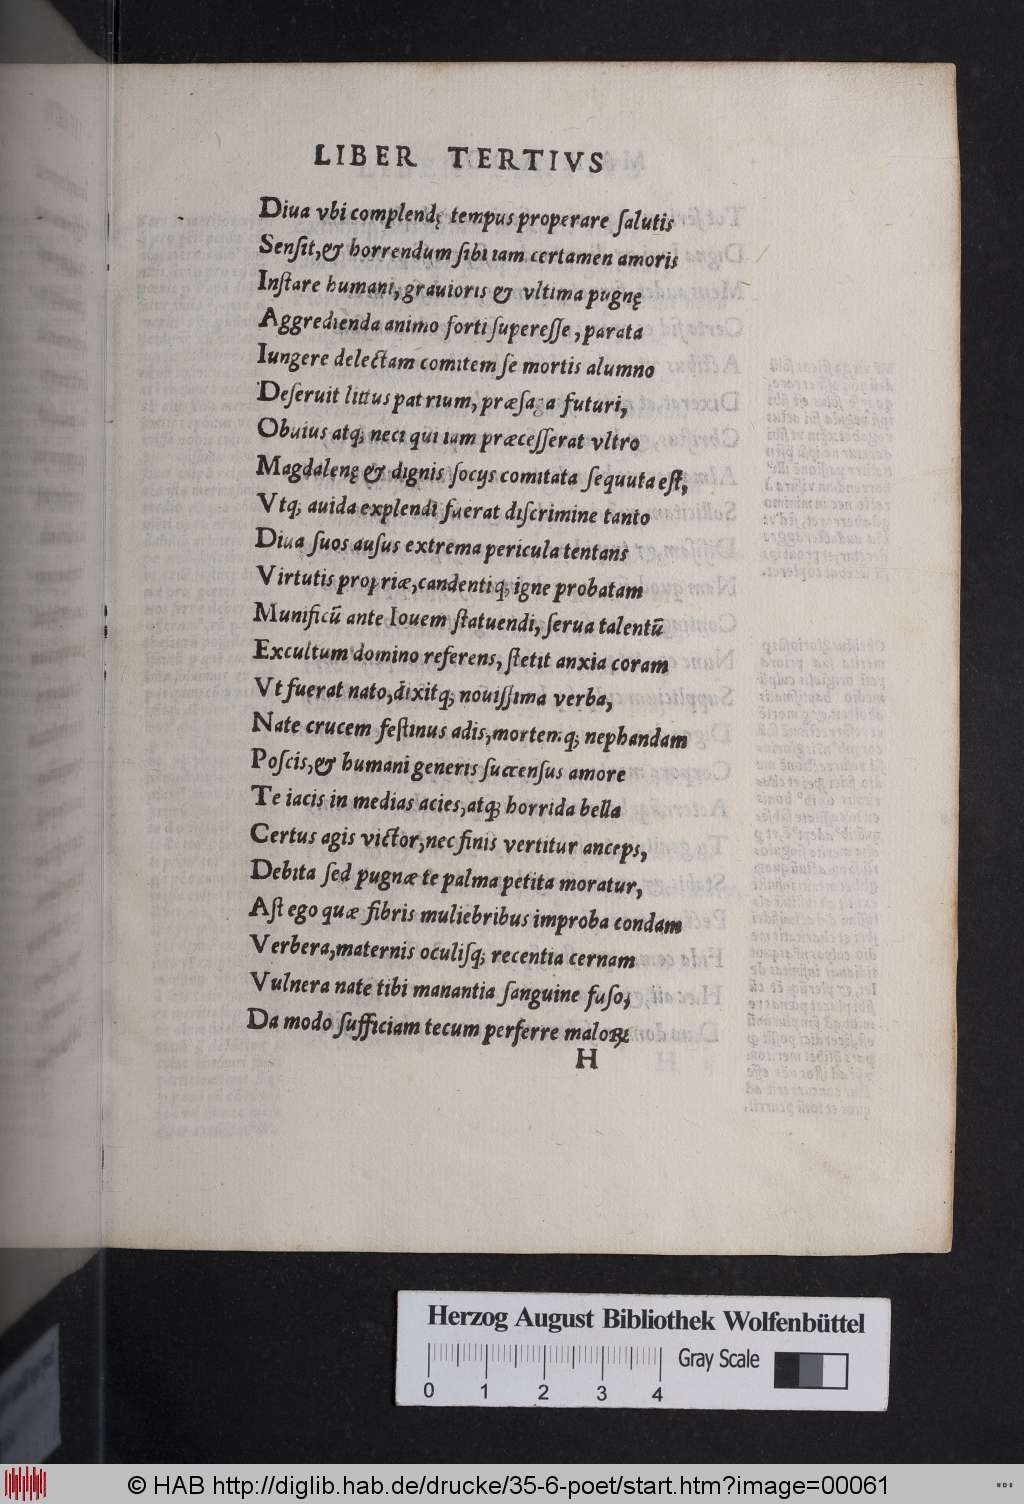 LIBER TERTIVS
Diua vbi complendę tempus properare ſalutis
Senſit,& horrendum ſibi iam certamen amoris
Inſtare humani, grauioris & vltima pugnę
Aggredienda animo forti ſupereſſe, parata
Iungere delectam comitem ſe mortis alumno
Deſeruit littus patrium, præſaga futuri,
Obuius atq; neci qui iam præceſſerat vltro
Magdalenę & dignis ſocijs comitata ſequuta eſt,
Vtq; auida explendi fuerat diſcrimine tanto
Diua ſuos auſus extrema pericula tentans
Virtutis propriæ,candentiq; igne probatam
Munificū ante Iouem ſtatuendi, ſerua talentū
Excultum domino referens, ſtetit anxia coram
Vt fuerat nato,dixitq; nouiſſima verba,
Nate crucem feſtinus adis,mortemq; nephandam
Poſcis,& humani generis ſuccenſus amore
Te iacis in medias acies,atq; horrida bella
Certus agis victor,nec finis vertitur anceps,
Debita ſed pugnæ te palma petita moratur,
Aſt ego quæ fibris muliebribus improba condam
Verbera,maternis oculiſq; recentia cernam
Vulnera nate tibi manantia ſanguine fuſo,
Da modo ſufficiam tecum perferre maloꝝ
H
Herzog August Bibliothek Wolfenbüttel
Gray Scale
0 1 2 3 4
© HAB http://diglib.hab.de/drucke/35-6-poet/start.htm?image=00061